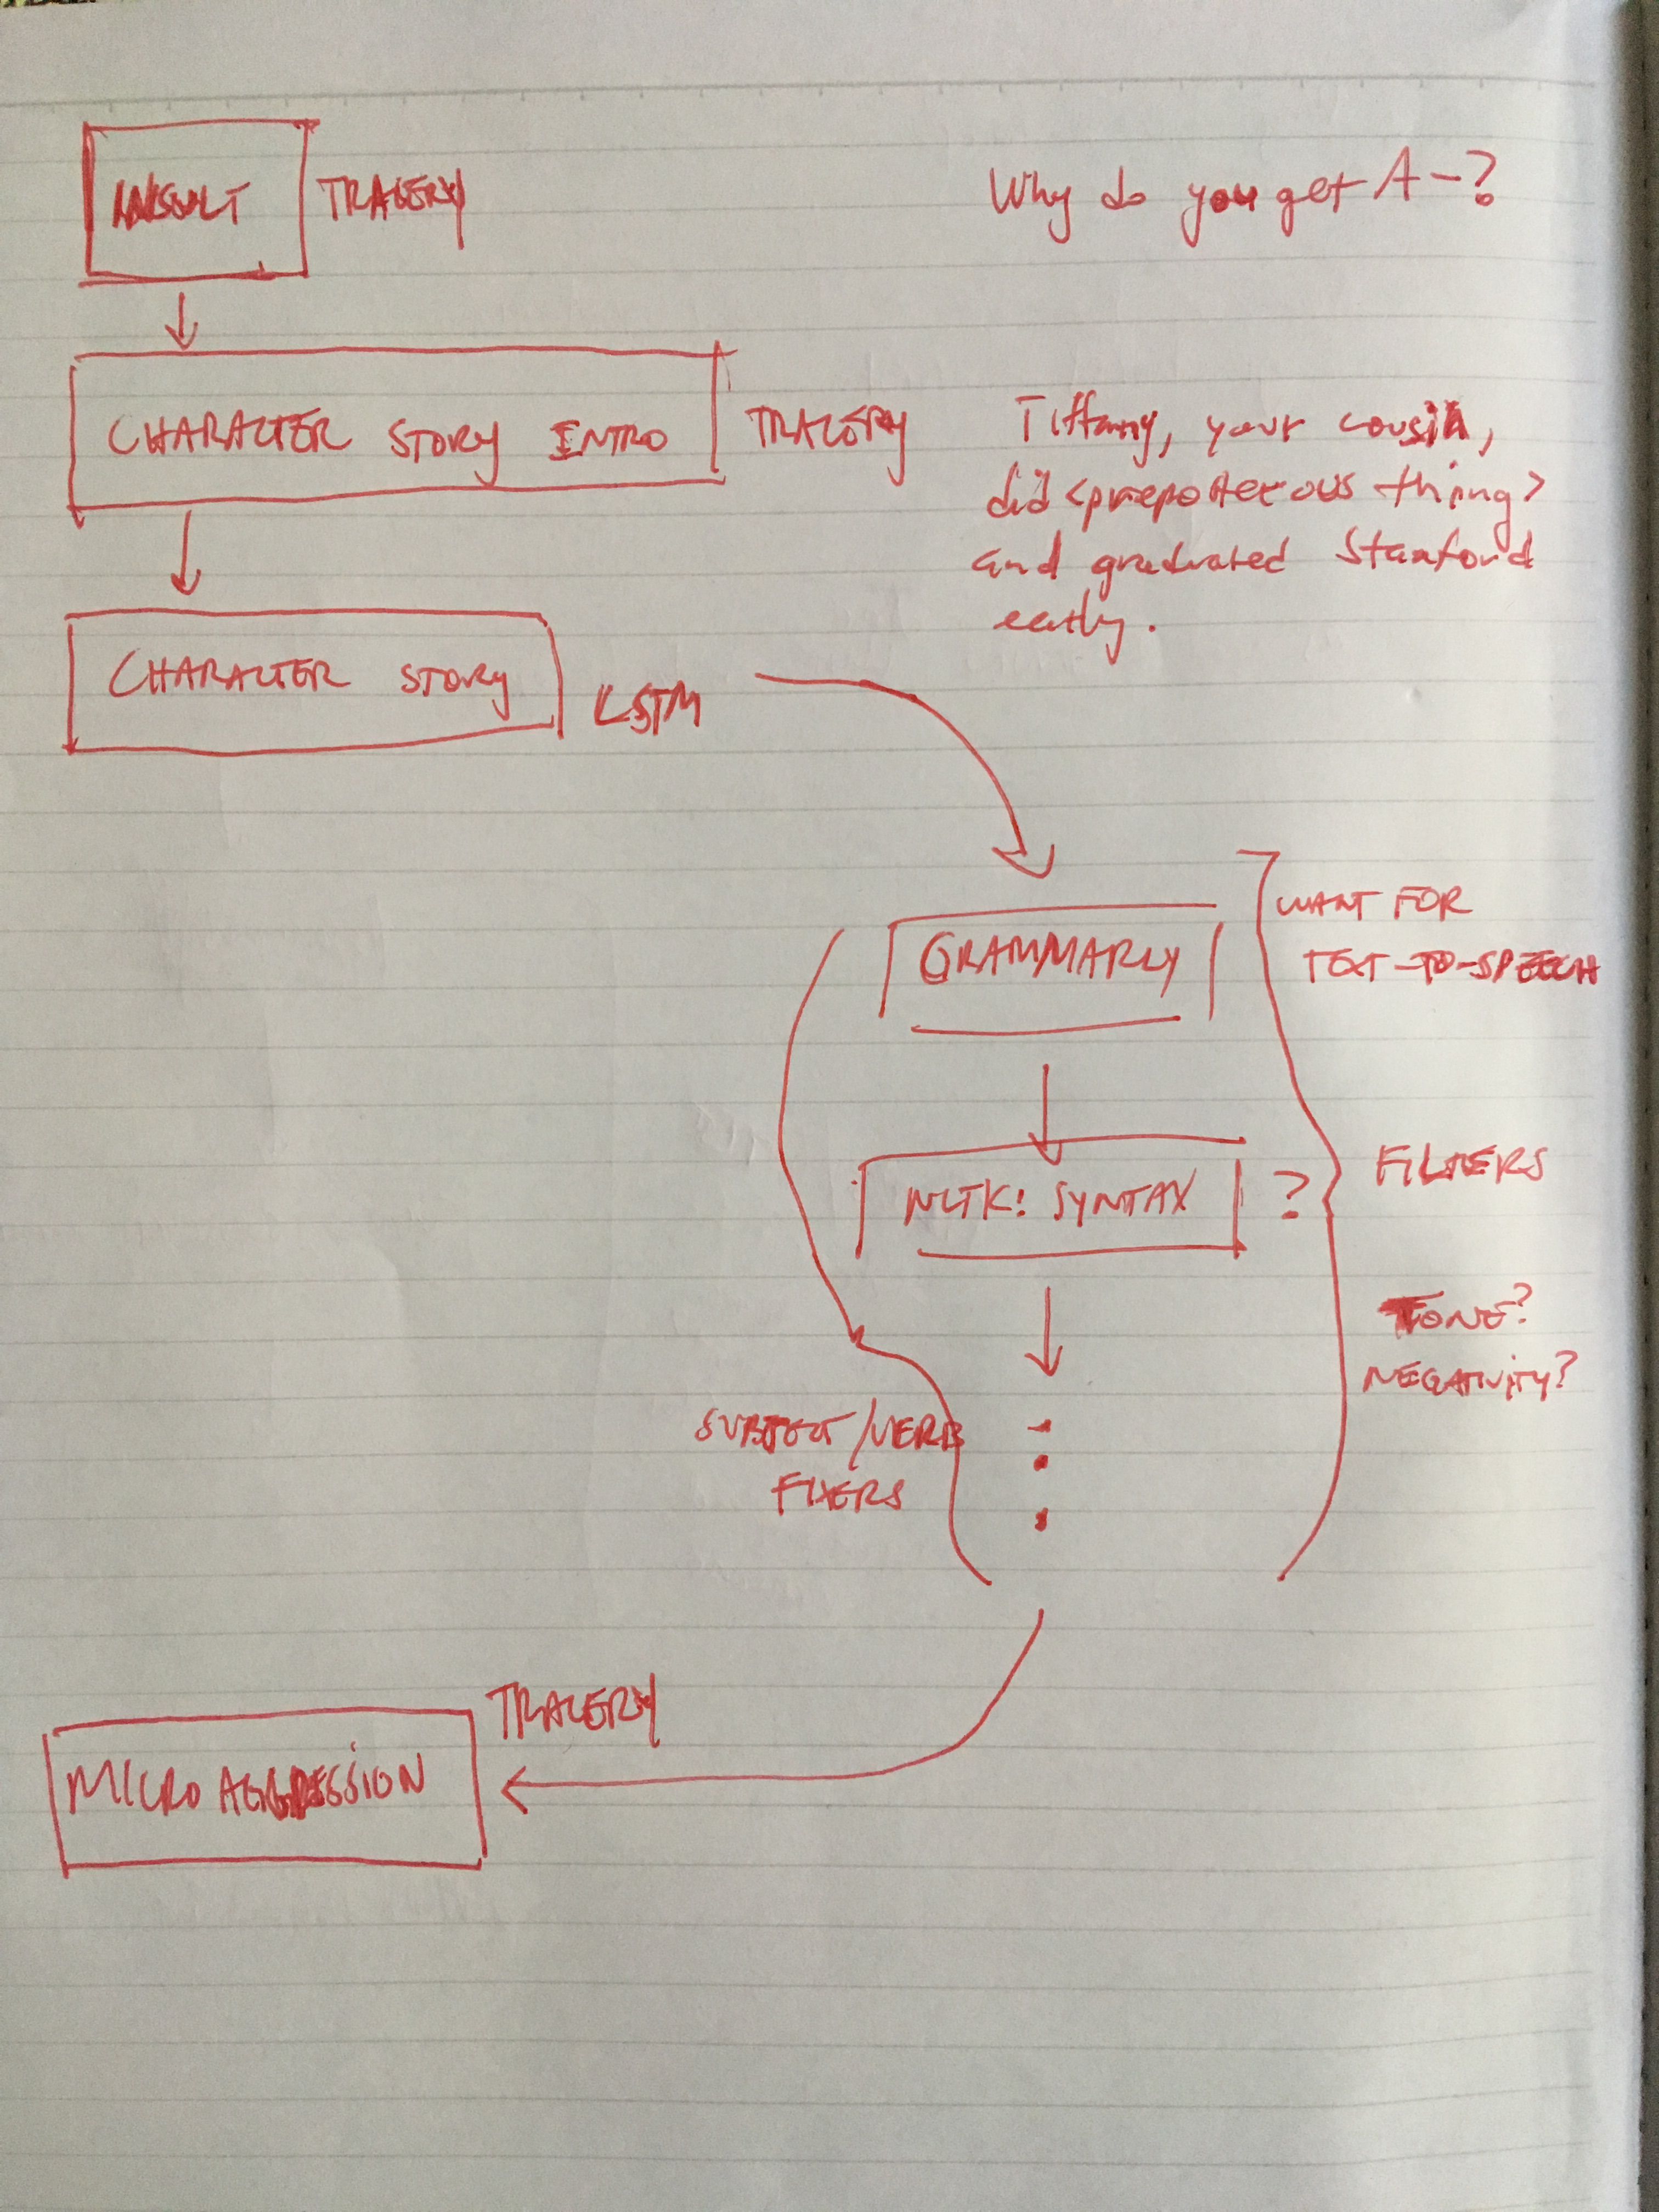 INSULT TRACERY
Why do you get A-?
CHARACTER STORY INTRO TRACERY
Tiffany, your cousin,
did <preposterous thing>
and graduated Stanford
early.
CHARACTER STORY LSTM
GRAMMARLY
WANT FOR
TEXT-TO-SPEECH
NLTK: SYNTAX ?
FILTERS
TONE?
NEGATIVITY?
SUBJECT/VERB
FIXERS
TRACERY
MICRO AGGRESSION